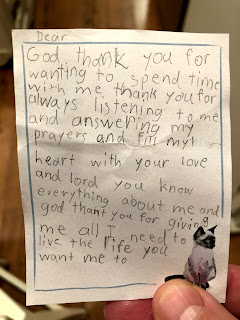 Dear
God thank you for
wanting to spend time
with me thank you for
always listening to me
and answering my
prayers and fill my
heart with your love
and lord you know
everything about me and
god thank you for giving
me all I need to
live the life you
want me to